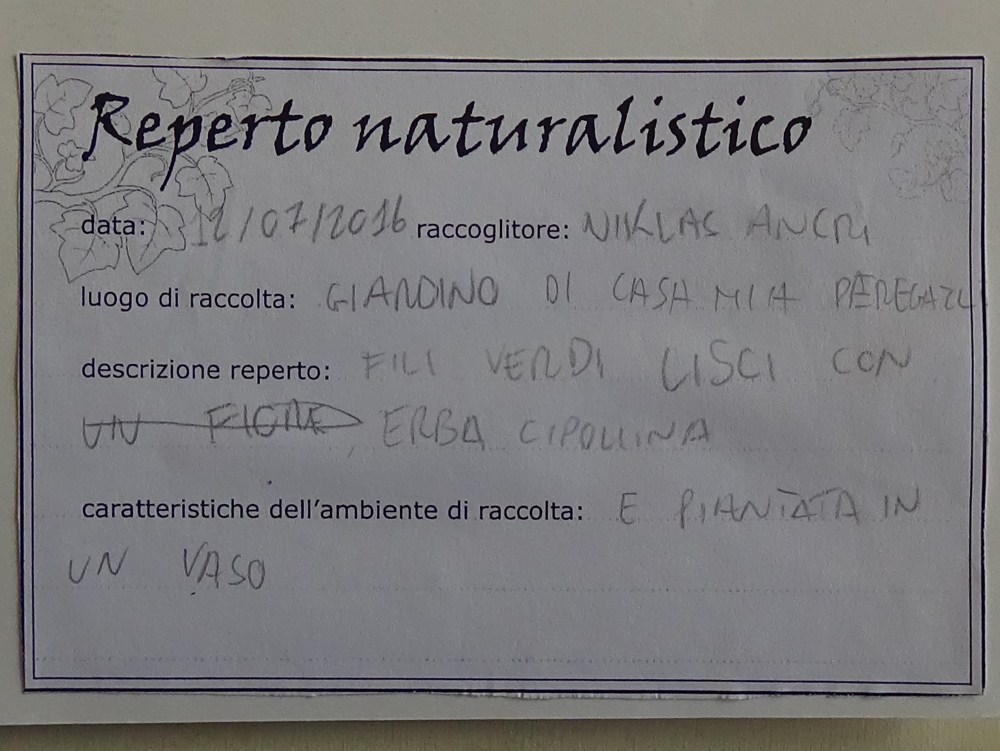 Reperto naturalistico
data: 12/07/2016 raccoglitore: NIKLAS
luogo di raccolta: GIARDINO DI CASA MIA
descrizione reperto: FILI VERDI LISCI CON
UN FIORE, ERBA CIPOLLINA
caratteristiche dell'ambiente di raccolta: E PIANTATA IN
UN VASO